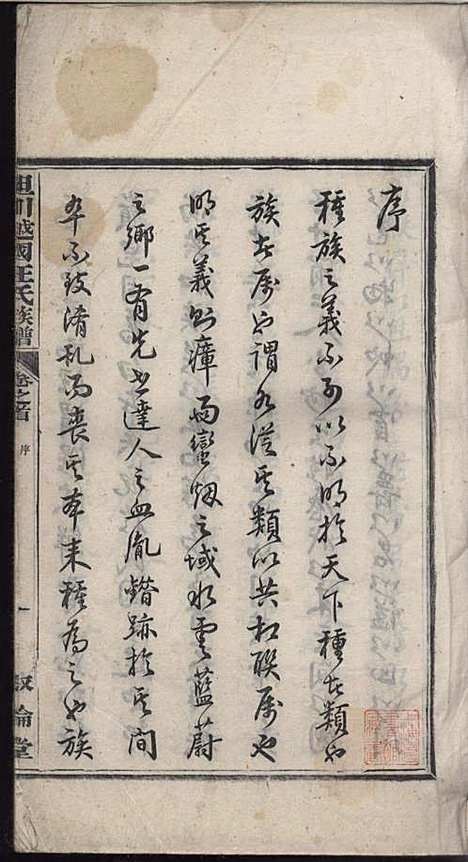 序
種族之義不可以不明於天下種者類也
族者属也謂各從其類以共相聯属也
明其義則瘴雨蠻烟之域水雲藍蔚
之鄉一有先世達人之血胤錯跡於其間
卒不致淆乱而喪其本来種為之也族
坦川越國汪氏族譜 卷之首 序 一 叙倫堂